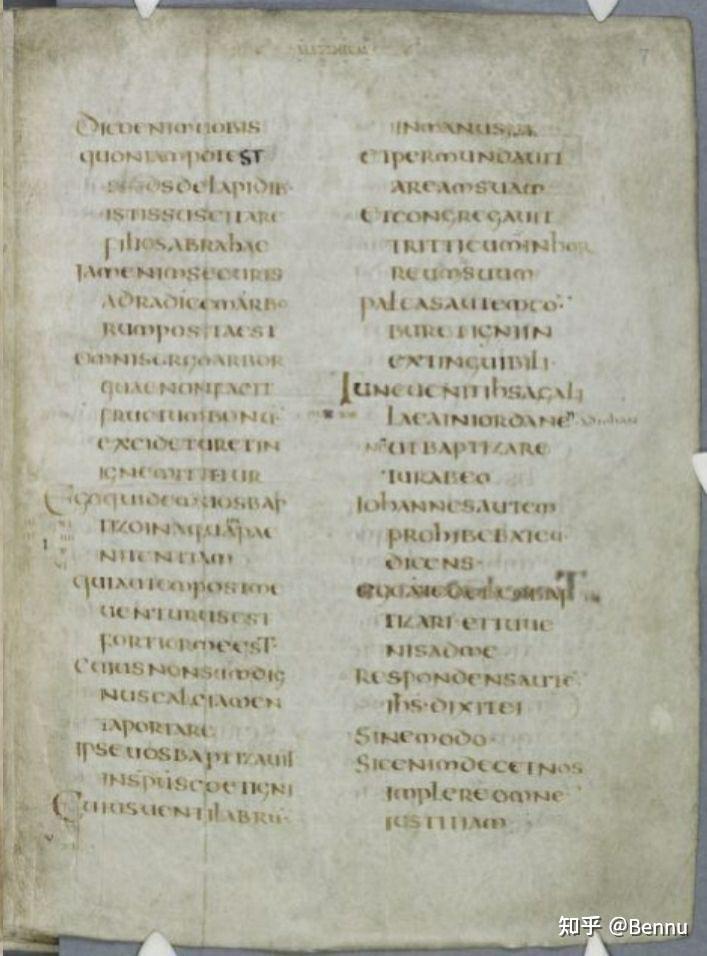 DICOENIMUOBIS
QUONIAMPOTEST
DSDELAPIDIB·
ISTISSUSCITARE
FILIOSABRAHAE
IAMENIMSECURIS
ADRADICEMARBO
RUMPOSITAEST
OMNISERGOARBOR
QUAENONFACIT
FRUCTUMBONU·
EXCIDETURETIN
IGNEMITTETUR
EGOQUIDEMUOSBAP
TIZOINAQUAINPAE
NITENTIAM
QUIAUTEMPOSTME
UENTURUSEST
FORTIORMEEST·
CUIUSNONSUMDIG
NUSCALCIAMEN
TAPORTARE
IPSEUOSBAPTIZAUIT
INSPUSCOETIGNI
CUIUSUENTILABRU·
7
INMANUSUA
ETPERMUNDAUIT
AREAMSUAM
ETCONGREGAUIT
TRITTICUMINHOR
REUMSUUM
PALEASAUTEMCO·
BURETIGNIIN
EXTINGUIBILI·
TUNCUENITIHSAGALI
LAEAINIORDANE
UTBAPTIZARE
TURABEO
IOHANNESAUTEM
PROHIBEBATEU·
DICENS·
TIZARI·ETTUUE
NISADME
RESPONDENSAUTE·
IHS·DIXITEI
SINEMODO·
SICENIMDECETNOS
IMPLEREOMNE
IUSTITIAM
知乎 @Bennu